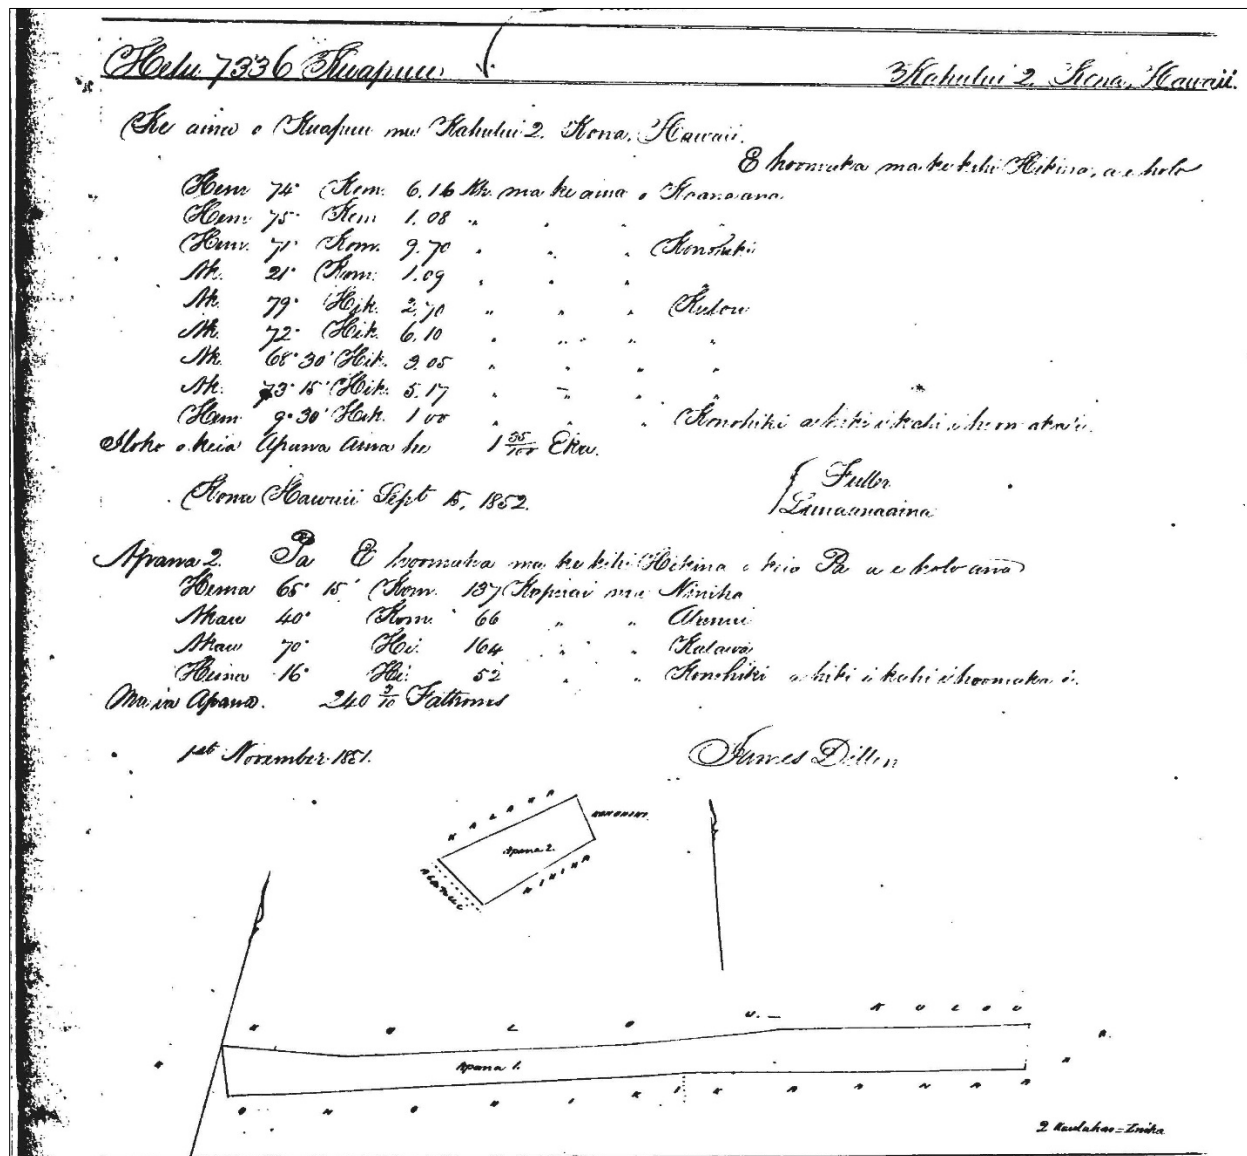 Helu 7336 Kuapuu
Kahului 2, Kona, Hawaii.
Ke aina o Kuapuu ma Kahului 2. Kona. Hawaii.
E hoomaka ma ke kihi Hikina, a e holo
Hem 74° Kom. 6.16 Kh. ma ke aina o Kaanaana.
Hem 75° Kom 1.08 " " " "
Hem. 71° Kom. 9.70 " " " Konohiki
Ak. 21° Kom. 1.09 " " "
Ak. 79° Hik. 2.70 " " " Kulou
Ak. 72° Hik. 6.10 " " " "
Ak. 68° 30' Hik. 3.05 " " " "
Ak. 73° 15' Hik. 5.17 " " "
Hem 9° 30' Hik. 1.00 " " " Konohiki a hiki i kahi i hoomaka'i.
Iloko o keia Apana Aina he 1 55/100 Eka.
Kona Hawaii Sept 15, 1852.
Fuller
Lunaanaaina
Apana 2. Pa E hoomaka ma ke kihi Hikina o keia Pa a e holo ana
Hema 65° 15' Kom. 137 Kapuai ma Niniha
Akau 40° Kom. 66 " "
Akau 70° Hi. 164 " " Kalawa
Hema 16° Hi. 52 " " Konohiki a hiki i kahi i hoomaka i.
Ma ia Apana. 240 3/10 Fathoms
1st November 1851.
James Dillen
KALAWA
KONOHIKI
Apana 2.
NINIHA
K O L O U. K U L O U
Apana 1.
K O N O H I K I K A A N A A N A
2 Kaulahao = Iniha